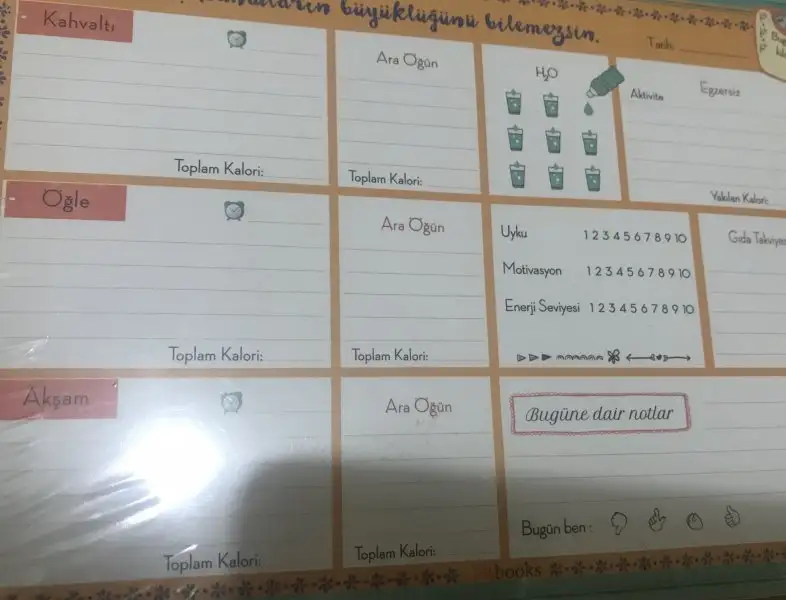 büyüklüğünü bilemezsin.
Tarih:
Kahvaltı
Toplam Kalori:
Ara Öğün
Toplam Kalori:
H₂O
Egzersiz
Aktivite
Yakılan Kalori:
Öğle
Toplam Kalori:
Ara Öğün
Toplam Kalori:
Uyku 1 2 3 4 5 6 7 8 9 10
Motivasyon 1 2 3 4 5 6 7 8 9 10
Enerji Seviyesi 1 2 3 4 5 6 7 8 9 10
Gıda
Akşam
Toplam Kalori:
Ara Öğün
Toplam Kalori:
Bugüne dair notlar
Bugün ben :
books